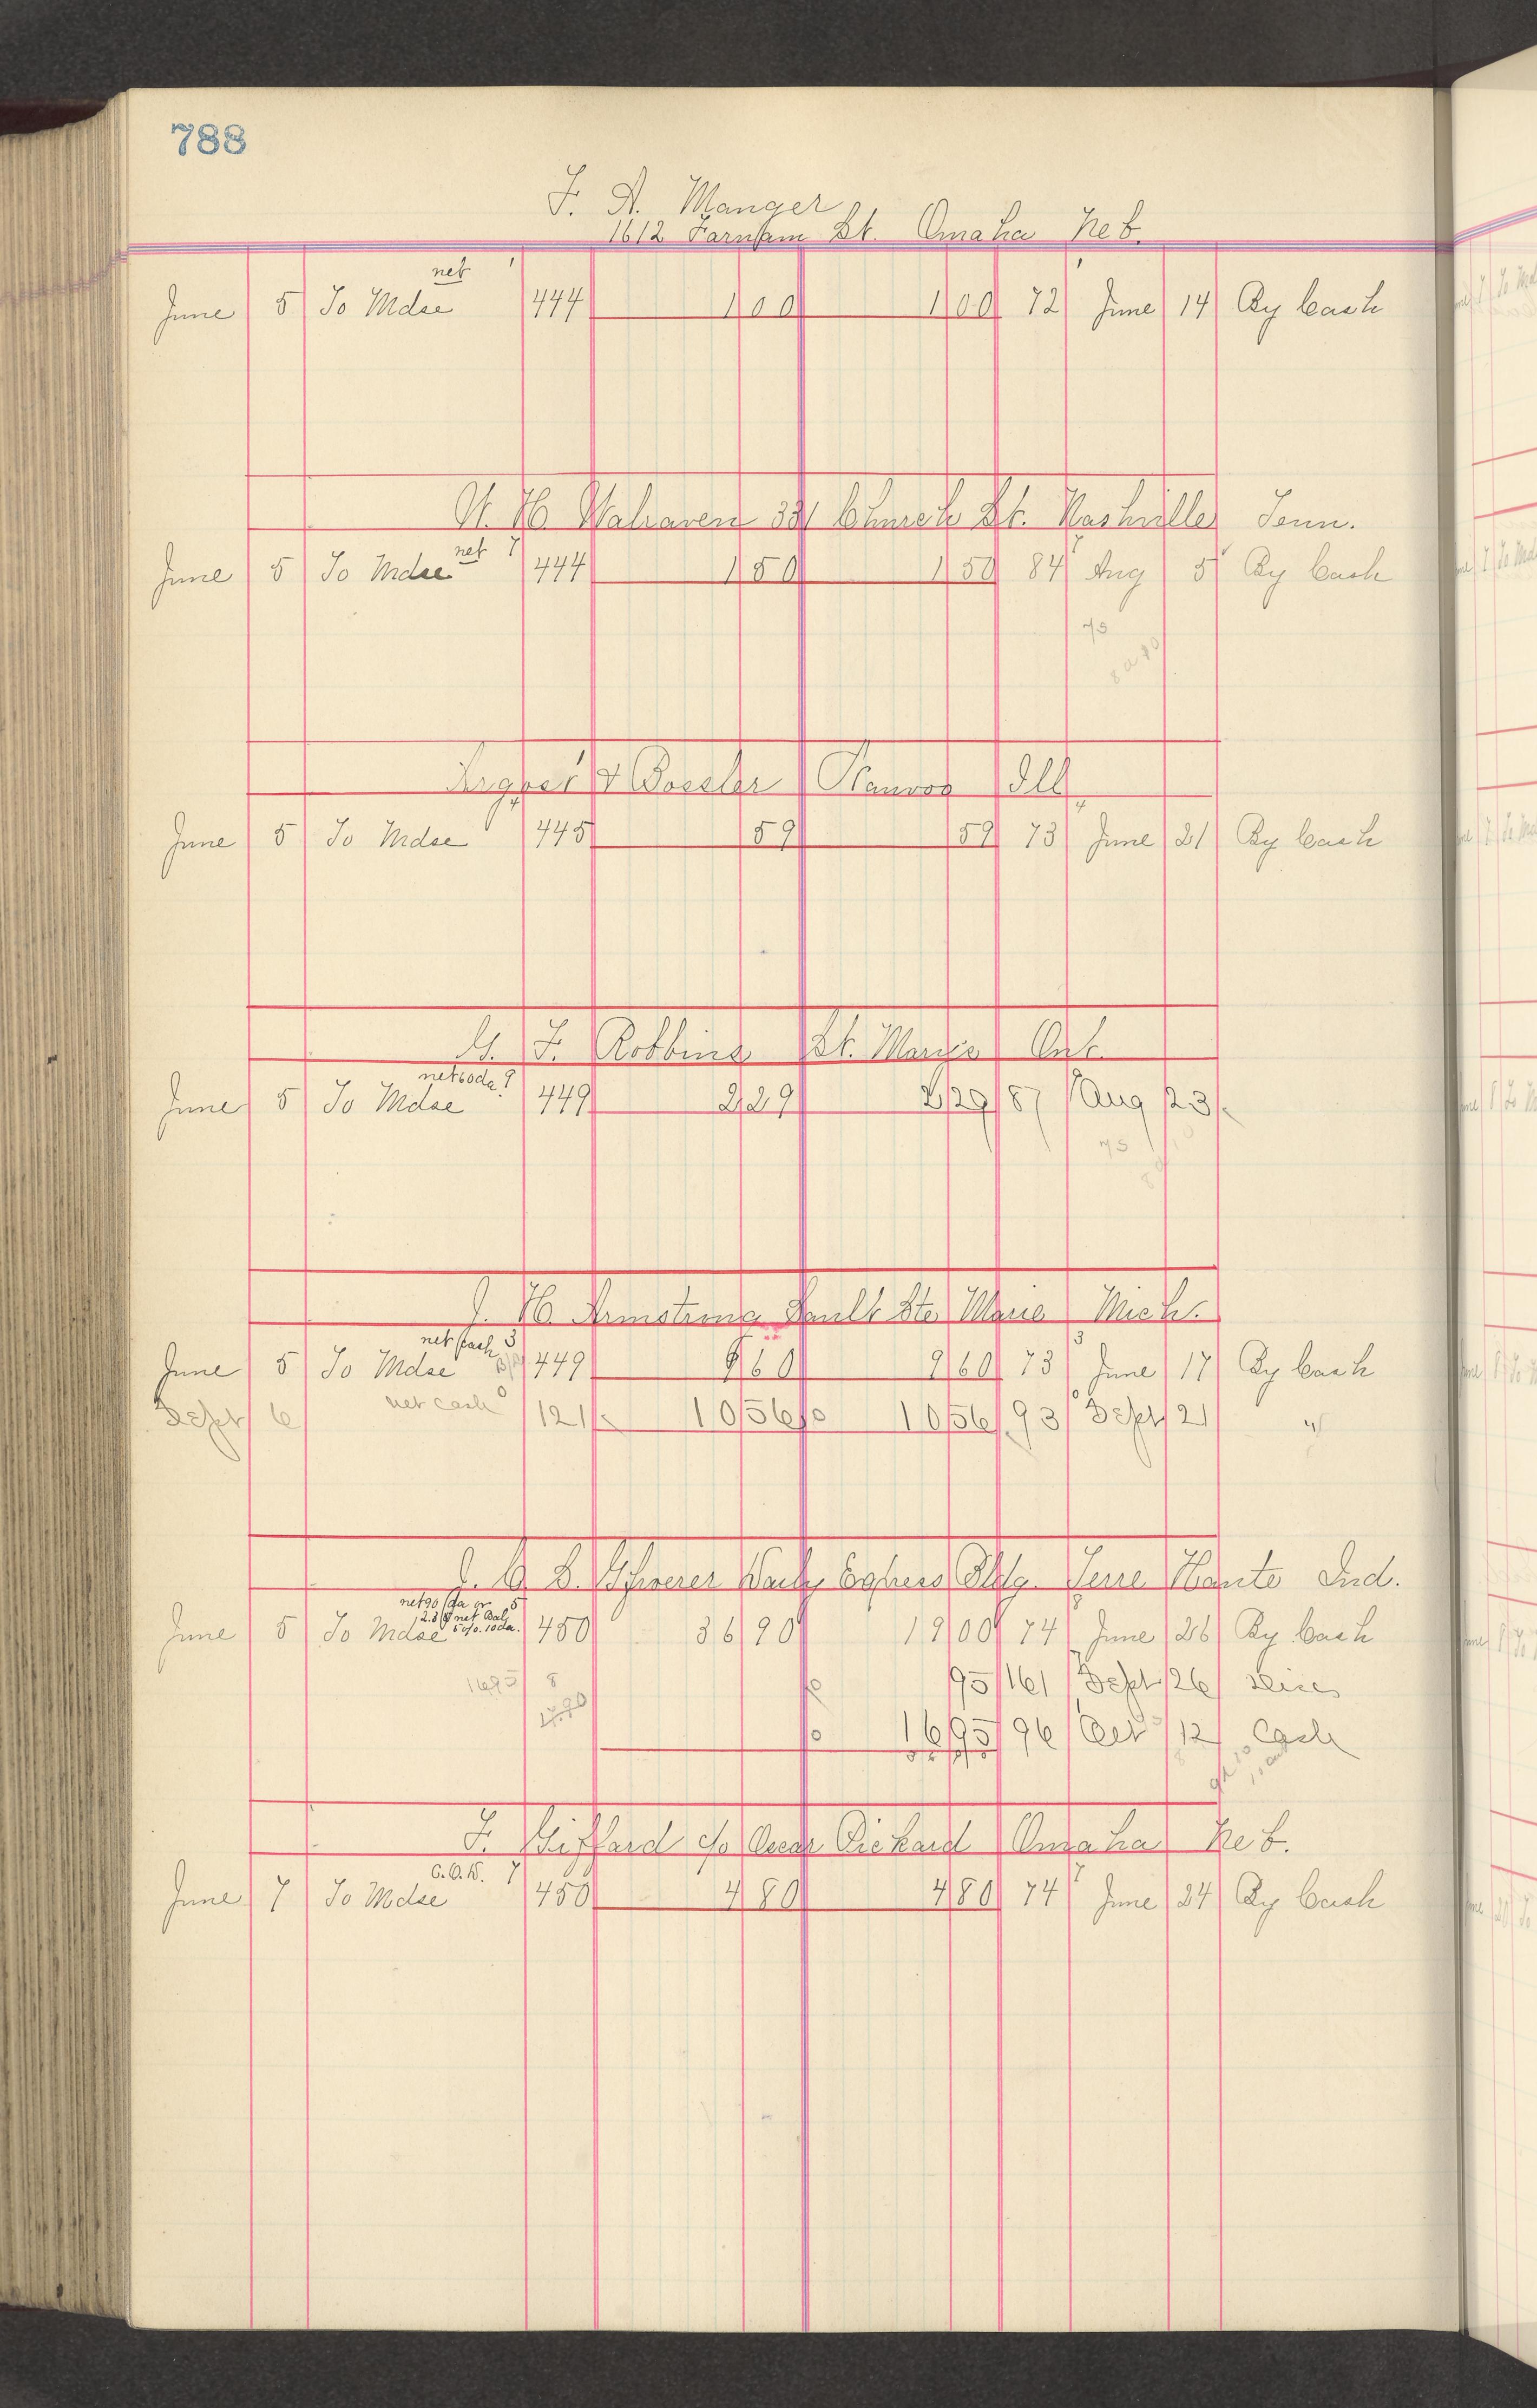 788
F. A. Manger
1612 Farnham St. Omaha Neb.
net
June 5 To Mdse 444 1 00 1 00 72 June 14 By Cash
331 Church St. Nashville Tenn.
net 7
June 5 To Mdse 444 1 50 1 50 84 Aug 5 By Cash
75
& Nauvoo Ill
June 5 To Mdse 445 59 59 73 June 21 By Cash
G. F. Robbins St. Marys Ont.
net 60 da 9
June 5 To Mdse 449 2 29 2 29 87 Aug 23
75
J. H. Armstrong Sault Ste Marie Mich.
net cash 3
June 5 To Mdse 449 9 60 9 60 73 June 17 By Cash
Sept 6 net cash 121 10 56 10 56 93 Sept 21 "
J. A. Bldg. Terre Haute Ind.
net 90 da or
net Bal
June 5 To Mdse 5% 10 da. 450 36 90 19 00 74 June 26 By Cash
1695 8 95 161 Sept 26
16 95 96 Oct 12 Cash
F. Giffard c/o Oscar Pickard Omaha Neb.
C.O.D. 7
June 7 To Mdse 450 4 80 4 80 74 June 24 By Cash